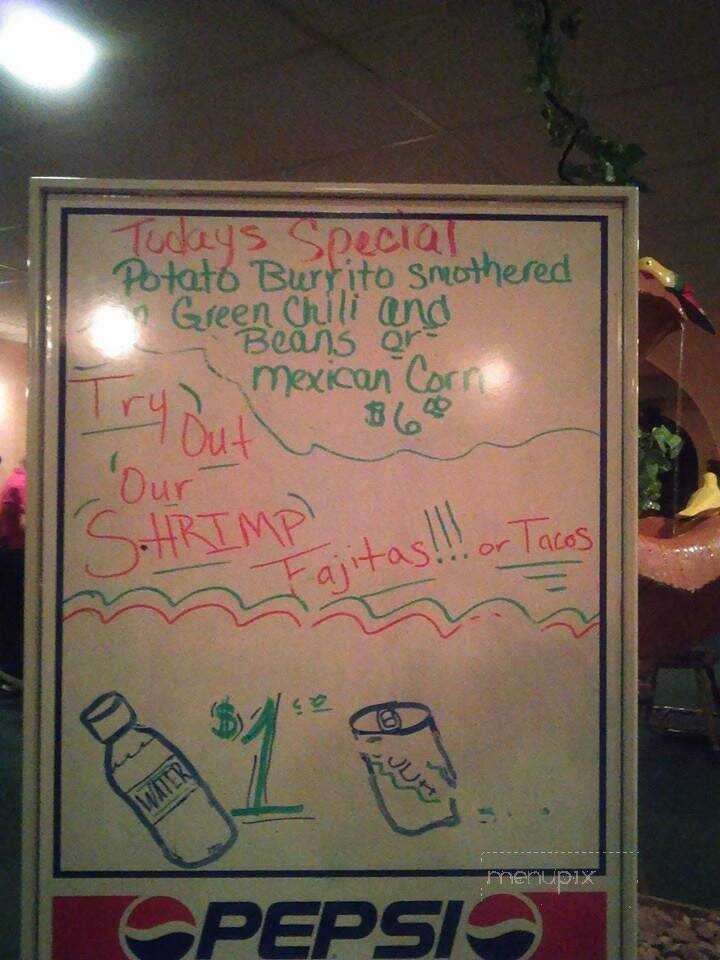 Todays Special
Potato Burrito smothered
in Green Chili and
Beans or
Mexican Corn
$6.00
Try Out
Our
SHRIMP
Fajitas!!! or Tacos
WATER
$1.00
PEPSI
menupix